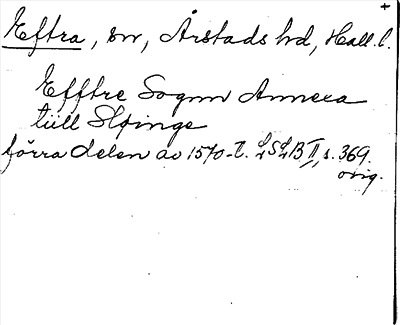 Eftra, sn, Årstads hd, Hall. l.
Efftre Sognn Annexa
tiill Sløinge
förra delen av 1570-t. LSLB II, s. 369.
orig.